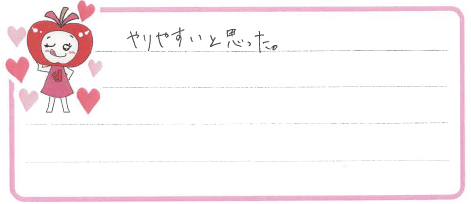 やりやすいと思った。